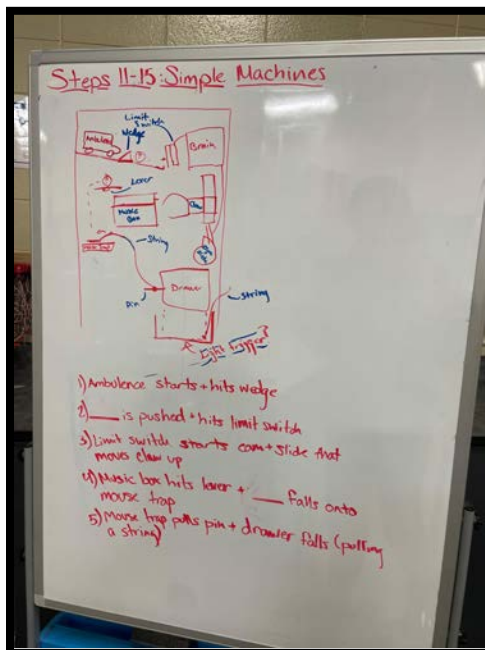 Steps 11-15: Simple Machines
Limit
Switch
Ambulance
Wedge
Brain
Lever
Music
Box
Claw
String
Drawer
Pin
String
Light trigger?
1) Ambulance starts + hits wedge
2) ___ is pushed + hits limit switch
3) Limit switch starts cam + slide that
moves claw up
4) Music box hits lever + ___ falls onto
mouse trap
5) Mouse trap pulls pin + drawer falls (pulling
a string)